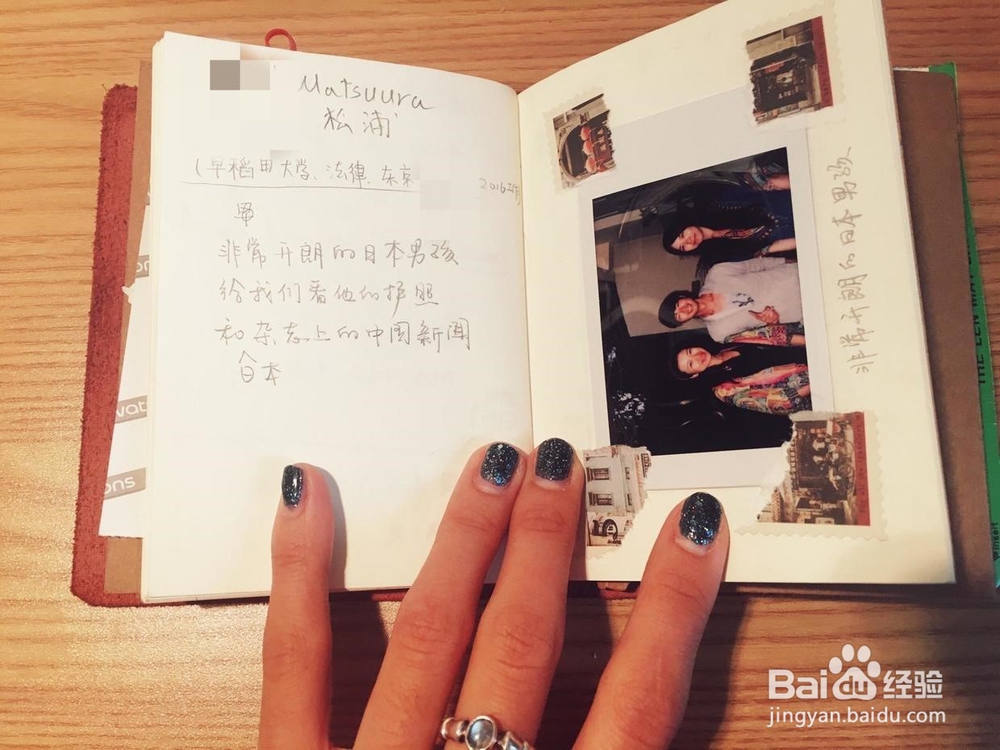 Matsuura
松浦
(早稻田大学、法律、东京
非常开朗的日本男孩
给我们看他的护照
和杂志上的中国新闻
日本
非常开朗的日本男孩
ons
Baidu经验
jingyan.baidu.com